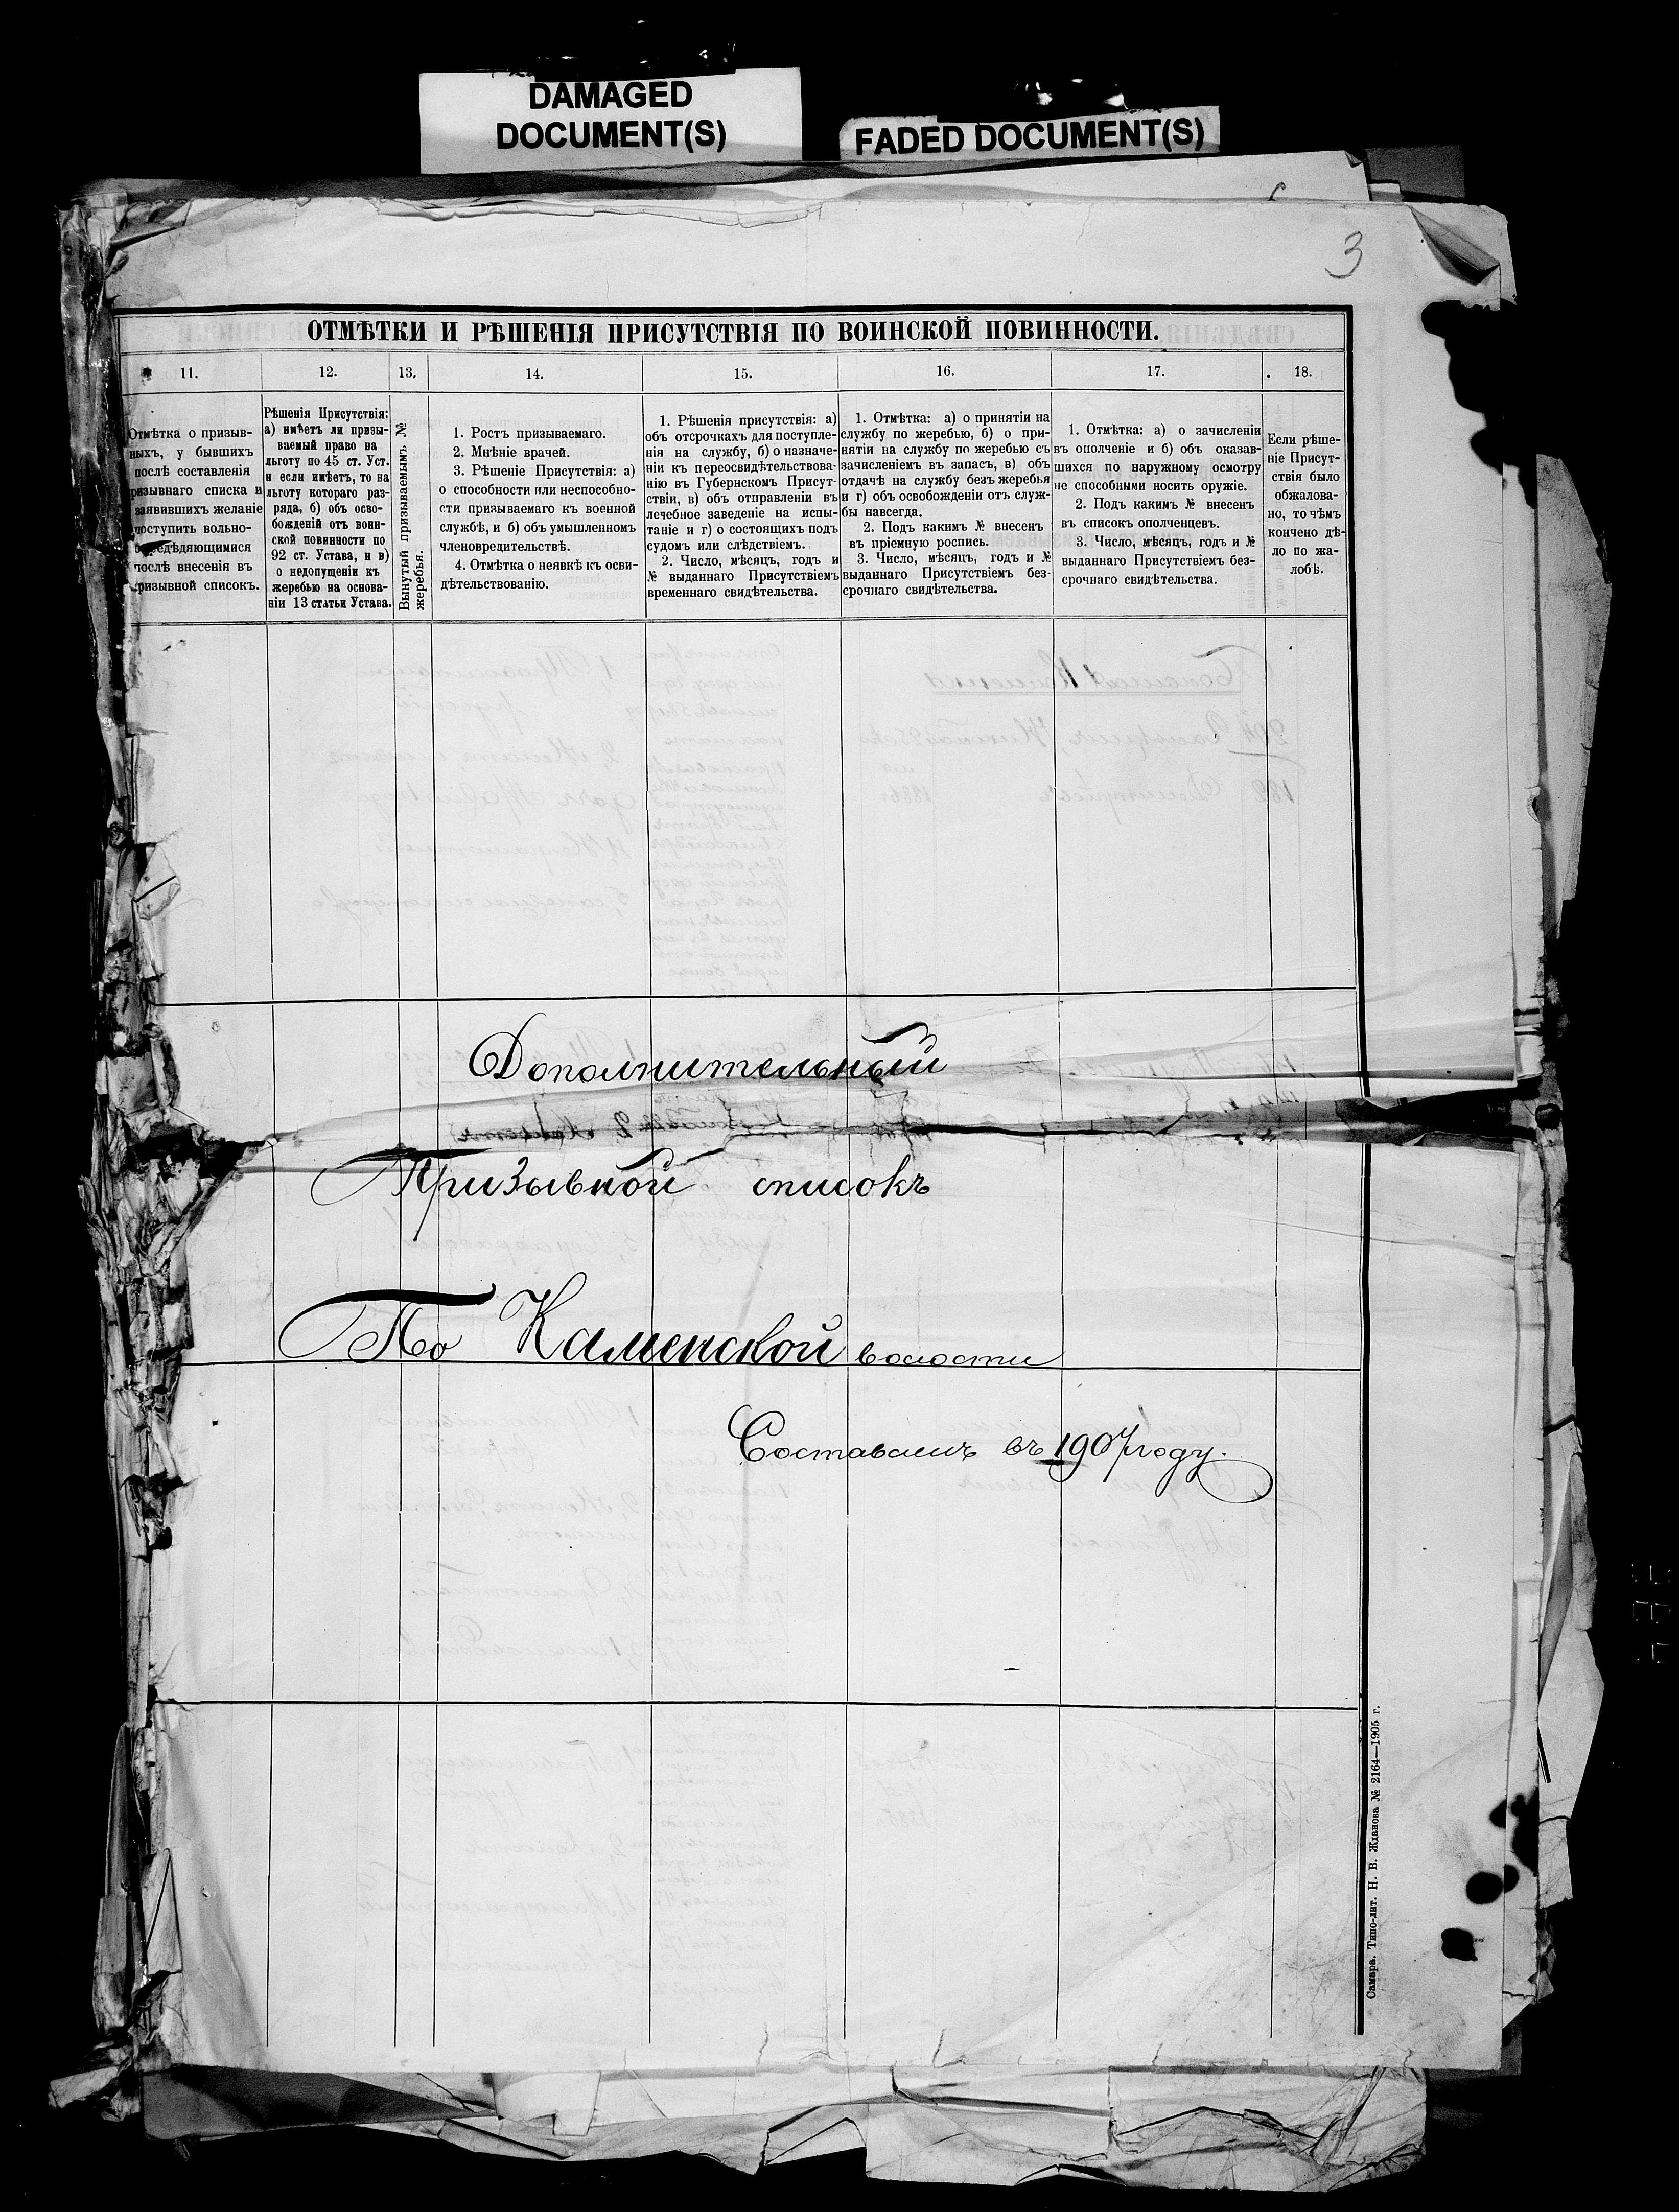 DAMAGED
DOCUMENT(S)
FADED DOCUMENT(S)
3
ОТМѢТКИ И РѢШЕНІЯ ПРИСУТСТВІЯ ПО ВОИНСКОЙ ПОВИННОСТИ.
11.
12.
13.
14.
15.
16.
17.
18.
Отмѣтка о призыв-
ныхъ, у бывшихъ
послѣ составленія
призывнаго списка и
заявившихъ желаніе
поступить вольно-
опредѣдяющимися
послѣ внесенія въ
призывной списокъ.
Рѣшенія Присутствія:
а) имѣетъ ли призы-
ваемый право на
льготу по 45 ст. Уст.
и если имѣетъ, то на
льготу котораго раз-
ряда, б) объ осво-
божденій отъ воин-
ской повинности по
92 ст. Устава, и в)
о недопущеніи къ
жеребью на основа-
ніи 13 статьи Устава.
Вынутый призываемымъ №
жеребья.
1. Ростъ призываемаго.
2. Мнѣніе врачей.
3. Рѣшеніе Присутствія: а)
о способности или неспособно-
сти призываемаго къ военной
службѣ, и б) объ умышленномъ
членовредительствѣ.
4. Отмѣтка о неявкѣ къ осви-
дѣтельствованію.
1. Рѣшенія присутствія: а)
объ отсрочкахъ для поступле-
нія на службу, б) о назначе-
ніи къ переосвидѣтельствова-
нію въ Губернскомъ Присут-
ствіи, в) объ отправленіи въ
лечебное заведеніе на испы-
таніе и г) о состоящихъ подъ
судомъ или слѣдствіемъ.
2. Число, мѣсяцъ, годъ и
№ выданнаго Присутствіемъ
временнаго свидѣтельства.
1. Отмѣтка: а) о принятіи на
службу по жеребью, б) о при-
нятіи на службу по жеребью съ
зачисленіемъ въ запасъ, в) объ
отдачѣ на службу безъ жеребья
и г) объ освобожденіи отъ служ-
бы навсегда.
2. Подъ какимъ № внесенъ
въ пріемную роспись.
3. Число, мѣсяцъ, годъ и №
выданнаго Присутствіемъ без-
срочнаго свидѣтельства.
1. Отмѣтка: а) о зачисленіи
въ ополченіе и б) объ оказав-
шихся по наружному осмотру
не способными носить оружіе.
2. Подъ какимъ № внесенъ
въ списокъ ополченцевъ.
3. Число, мѣсяцъ, годъ и №
выданнаго Присутствіемъ без-
срочнаго свидѣтельства.
Если рѣше-
ніе Присут-
ствія было
обжалова-
но, то чѣмъ
кончено дѣ-
ло по жа-
лобѣ.
Дополнительный
Призывной списокъ
По Каменской волости
Составленъ въ 1907 году.
Самара. Типо-лит. Н. В. Жданова № 2164—1905 г.